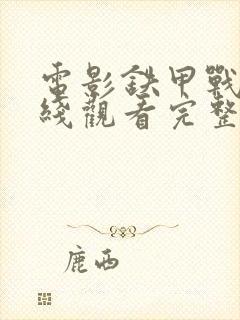 電影鉄甲戰
綫觀看完整
鹿西